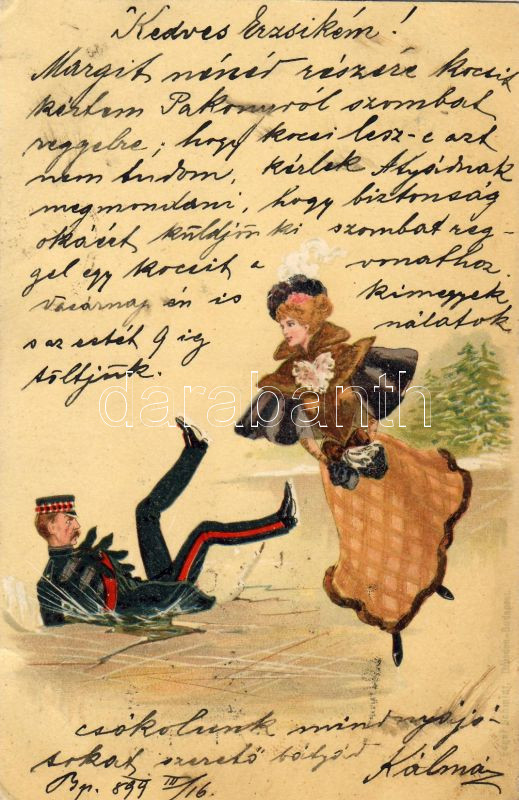 Kedves Erzsikém!
Margit nénéd részére kocsit
kértem Pakonyról szombat
reggelre; hogy kocsi lesz-e azt
nem tudom, kérlek Atyádnak
megmondani, hogy biztonság
okáért küldjön ki szombat reg-
gel egy kocsit a vonathoz.
Vasárnap én is kimegyek
nálatok
s az estét 9 ig
töltjük.
darabanth
csókolunk mindnyájó-
tokat szerető bátyád
Kálmán
Bp. 899 III/16.